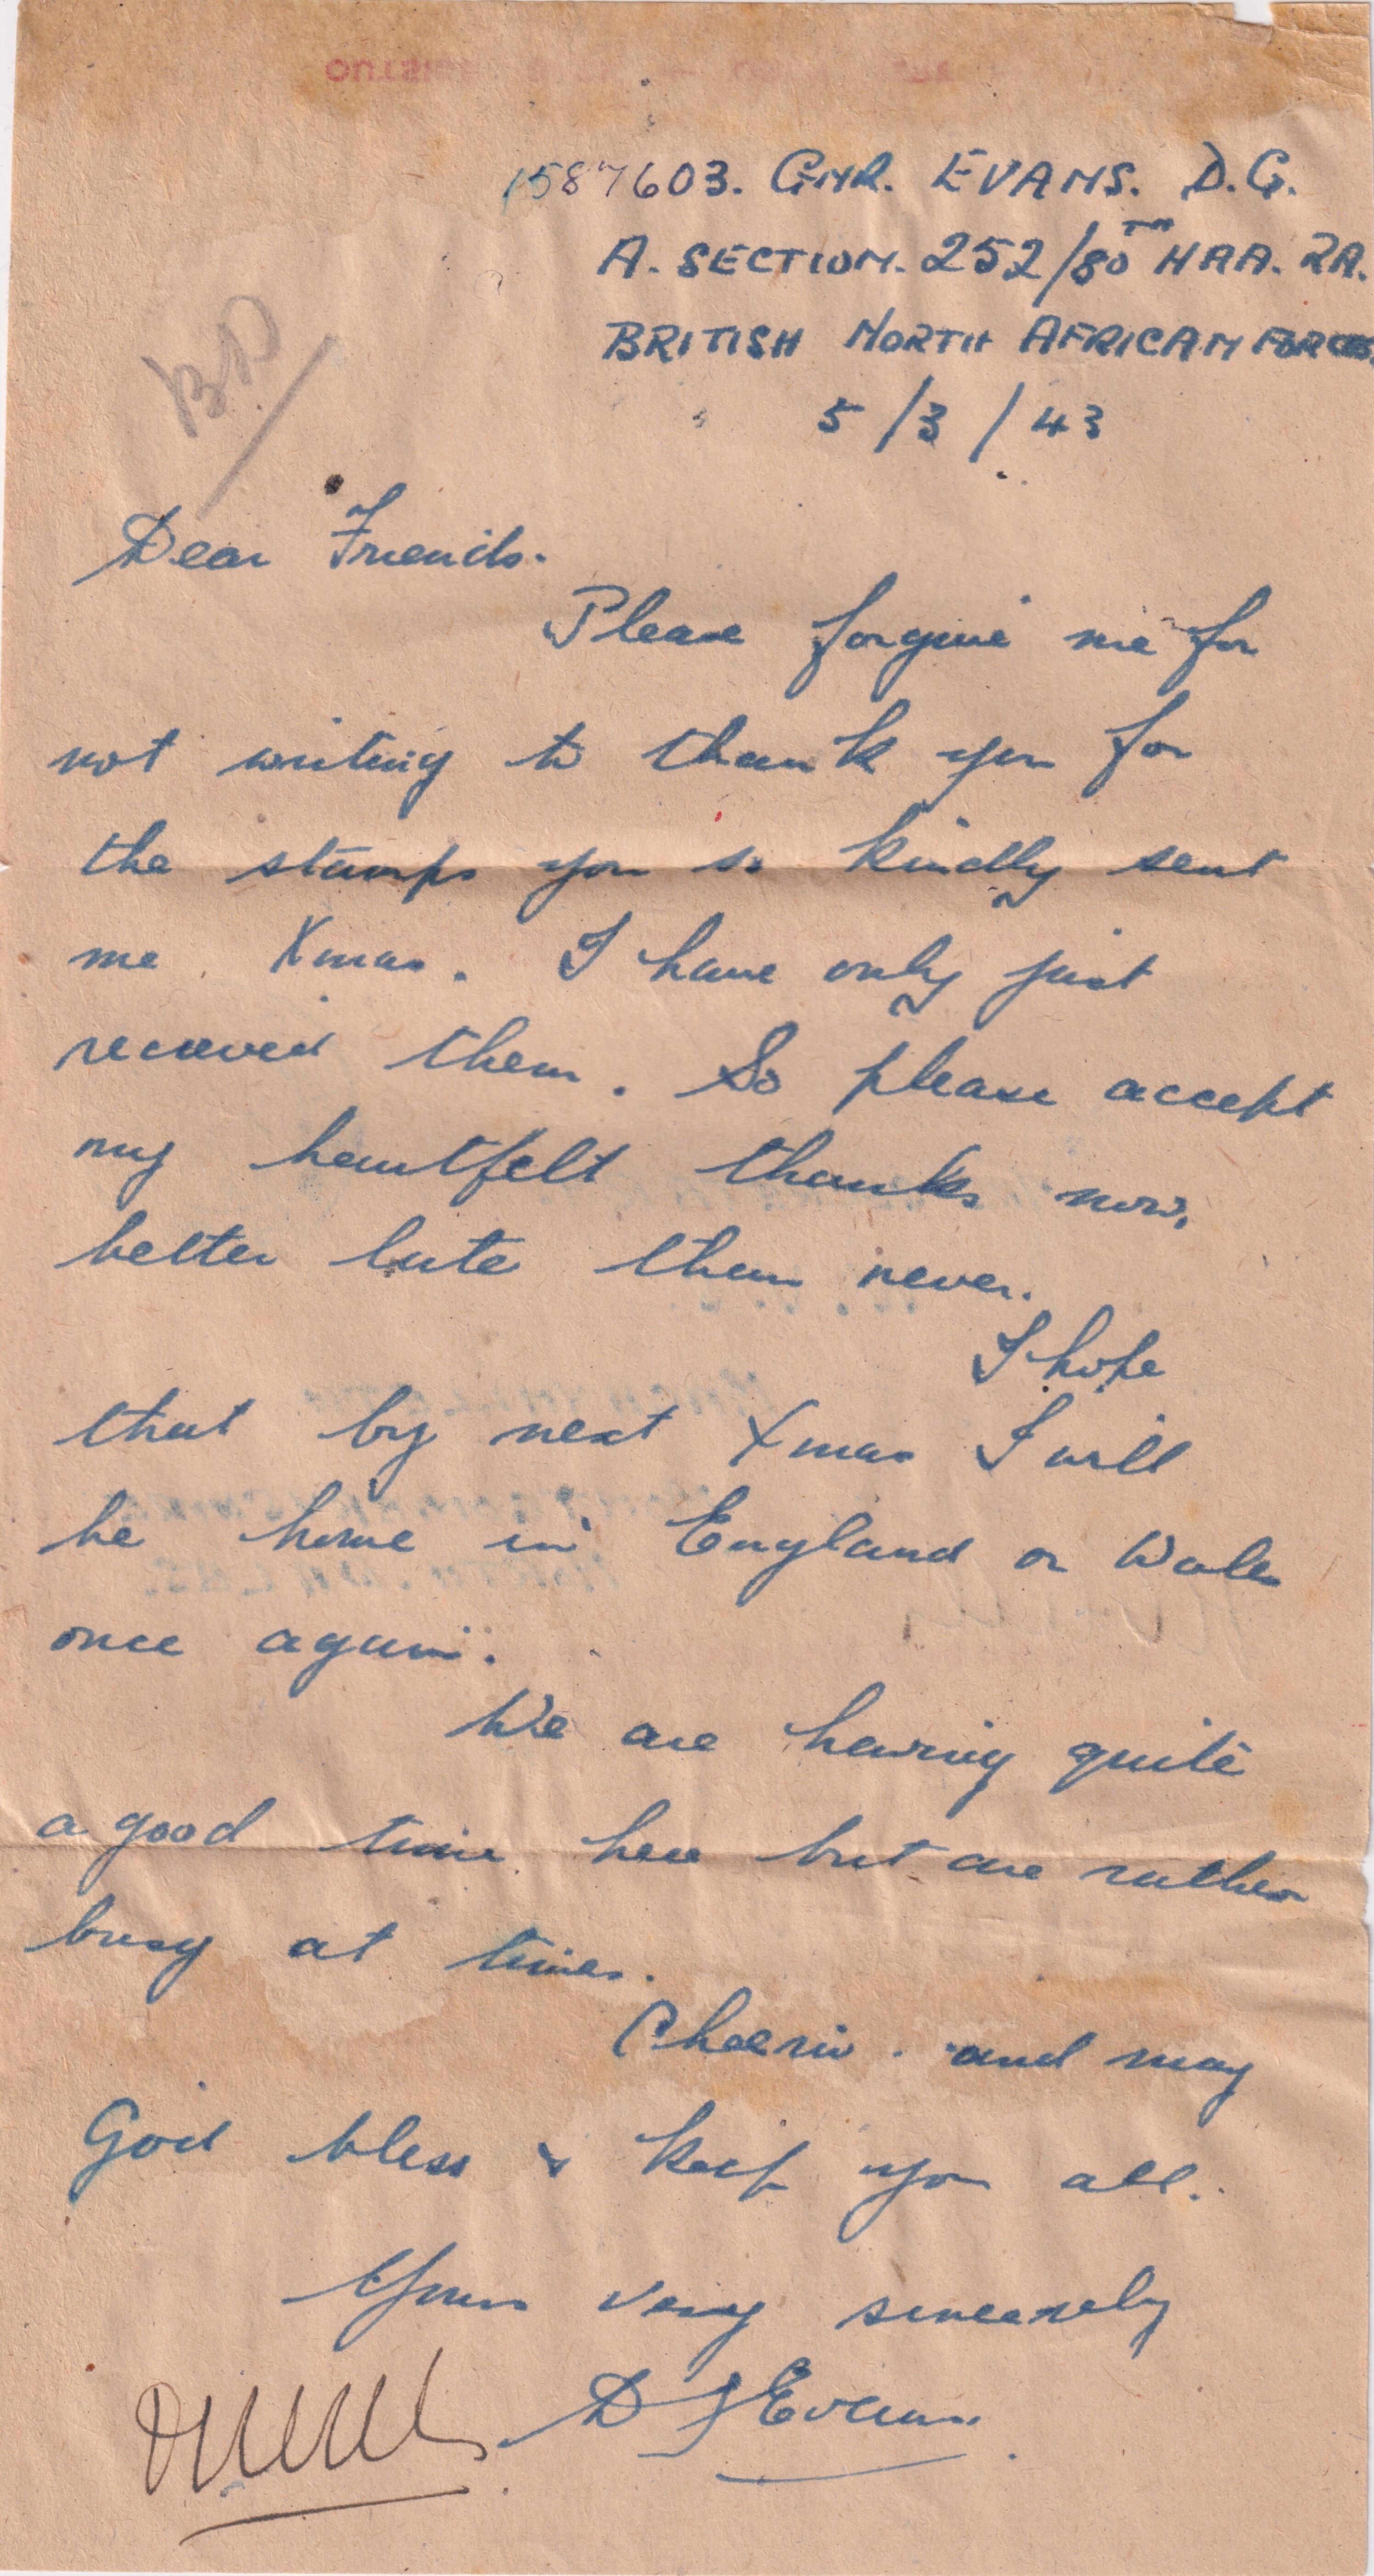 1587603. GNR. EVANS. D.G.
A. SECTION. 252/80TH HAA. RA.
BRITISH NORTH AFRICAN FORCES.
5/3/43
Dear Friends.
Please forgive me for
not writing to thank you for
the stamps you so kindly sent
me Xmas. I have only just
recieved them. So please accept
my heartfelt thanks now,
better late than never.
I hope
that by next Xmas I will
be home in England or Wales
once again.
We are having quite
a good time here but are rather
busy at times.
Cheerio. and may
God bless & keep you all.
Yours very sincerely
D G Evans.